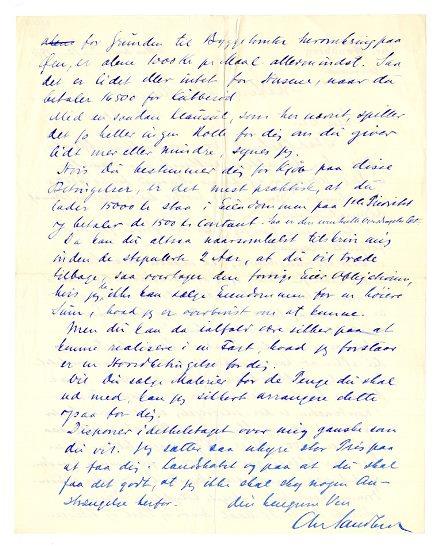 for Grunden til Byggetomter heromkring paa
Øen, er alene 10000 kr pr Maal allermindst. Saa
det er lidet eller intet for Husene, naar du
betaler 16500 for
Med en saadan Klausul, som her nævnt, spiller
det jo heller ingen Rolle for dig om du giver
lidt mer eller mindre, synes jeg.
Hvis Du bestemmer dig for Kjøb paa disse
Betingelser, er det mest praktisk, at du
lader 15000 kr staa i Eiendommen paa 1ste Prioritet
og betaler de 1500 kr Contant.
Da kan du altsaa naarsomhelst tilskrive mig
inden de stipulerte 2 Aar, at du vil træde
tilbage, saa overtager den forrige Eier
hvis jeg ikke kan sælge Eiendommen for en høiere
Sum, hvad jeg er overbevist om at kunne.
Men du kan da ialfald være sikker paa at
kunne realisere i en Fart, hvad jeg forstaar
er en Hovedbetingelse for dig.
Vil Du sælge Malerier for de Penge du skal
ud med, kan jeg sikkert arrangere dette
ogsaa for dig.
Disponer i det hele taget over mig ganske som
du vil. Jeg sætter saa uhyre stor Pris paa
at faa dig i Landskabet og paa at du skal
faa det godt, at jeg ikke skal sky nogen An-
strengelse herfor.
din hengivne Ven